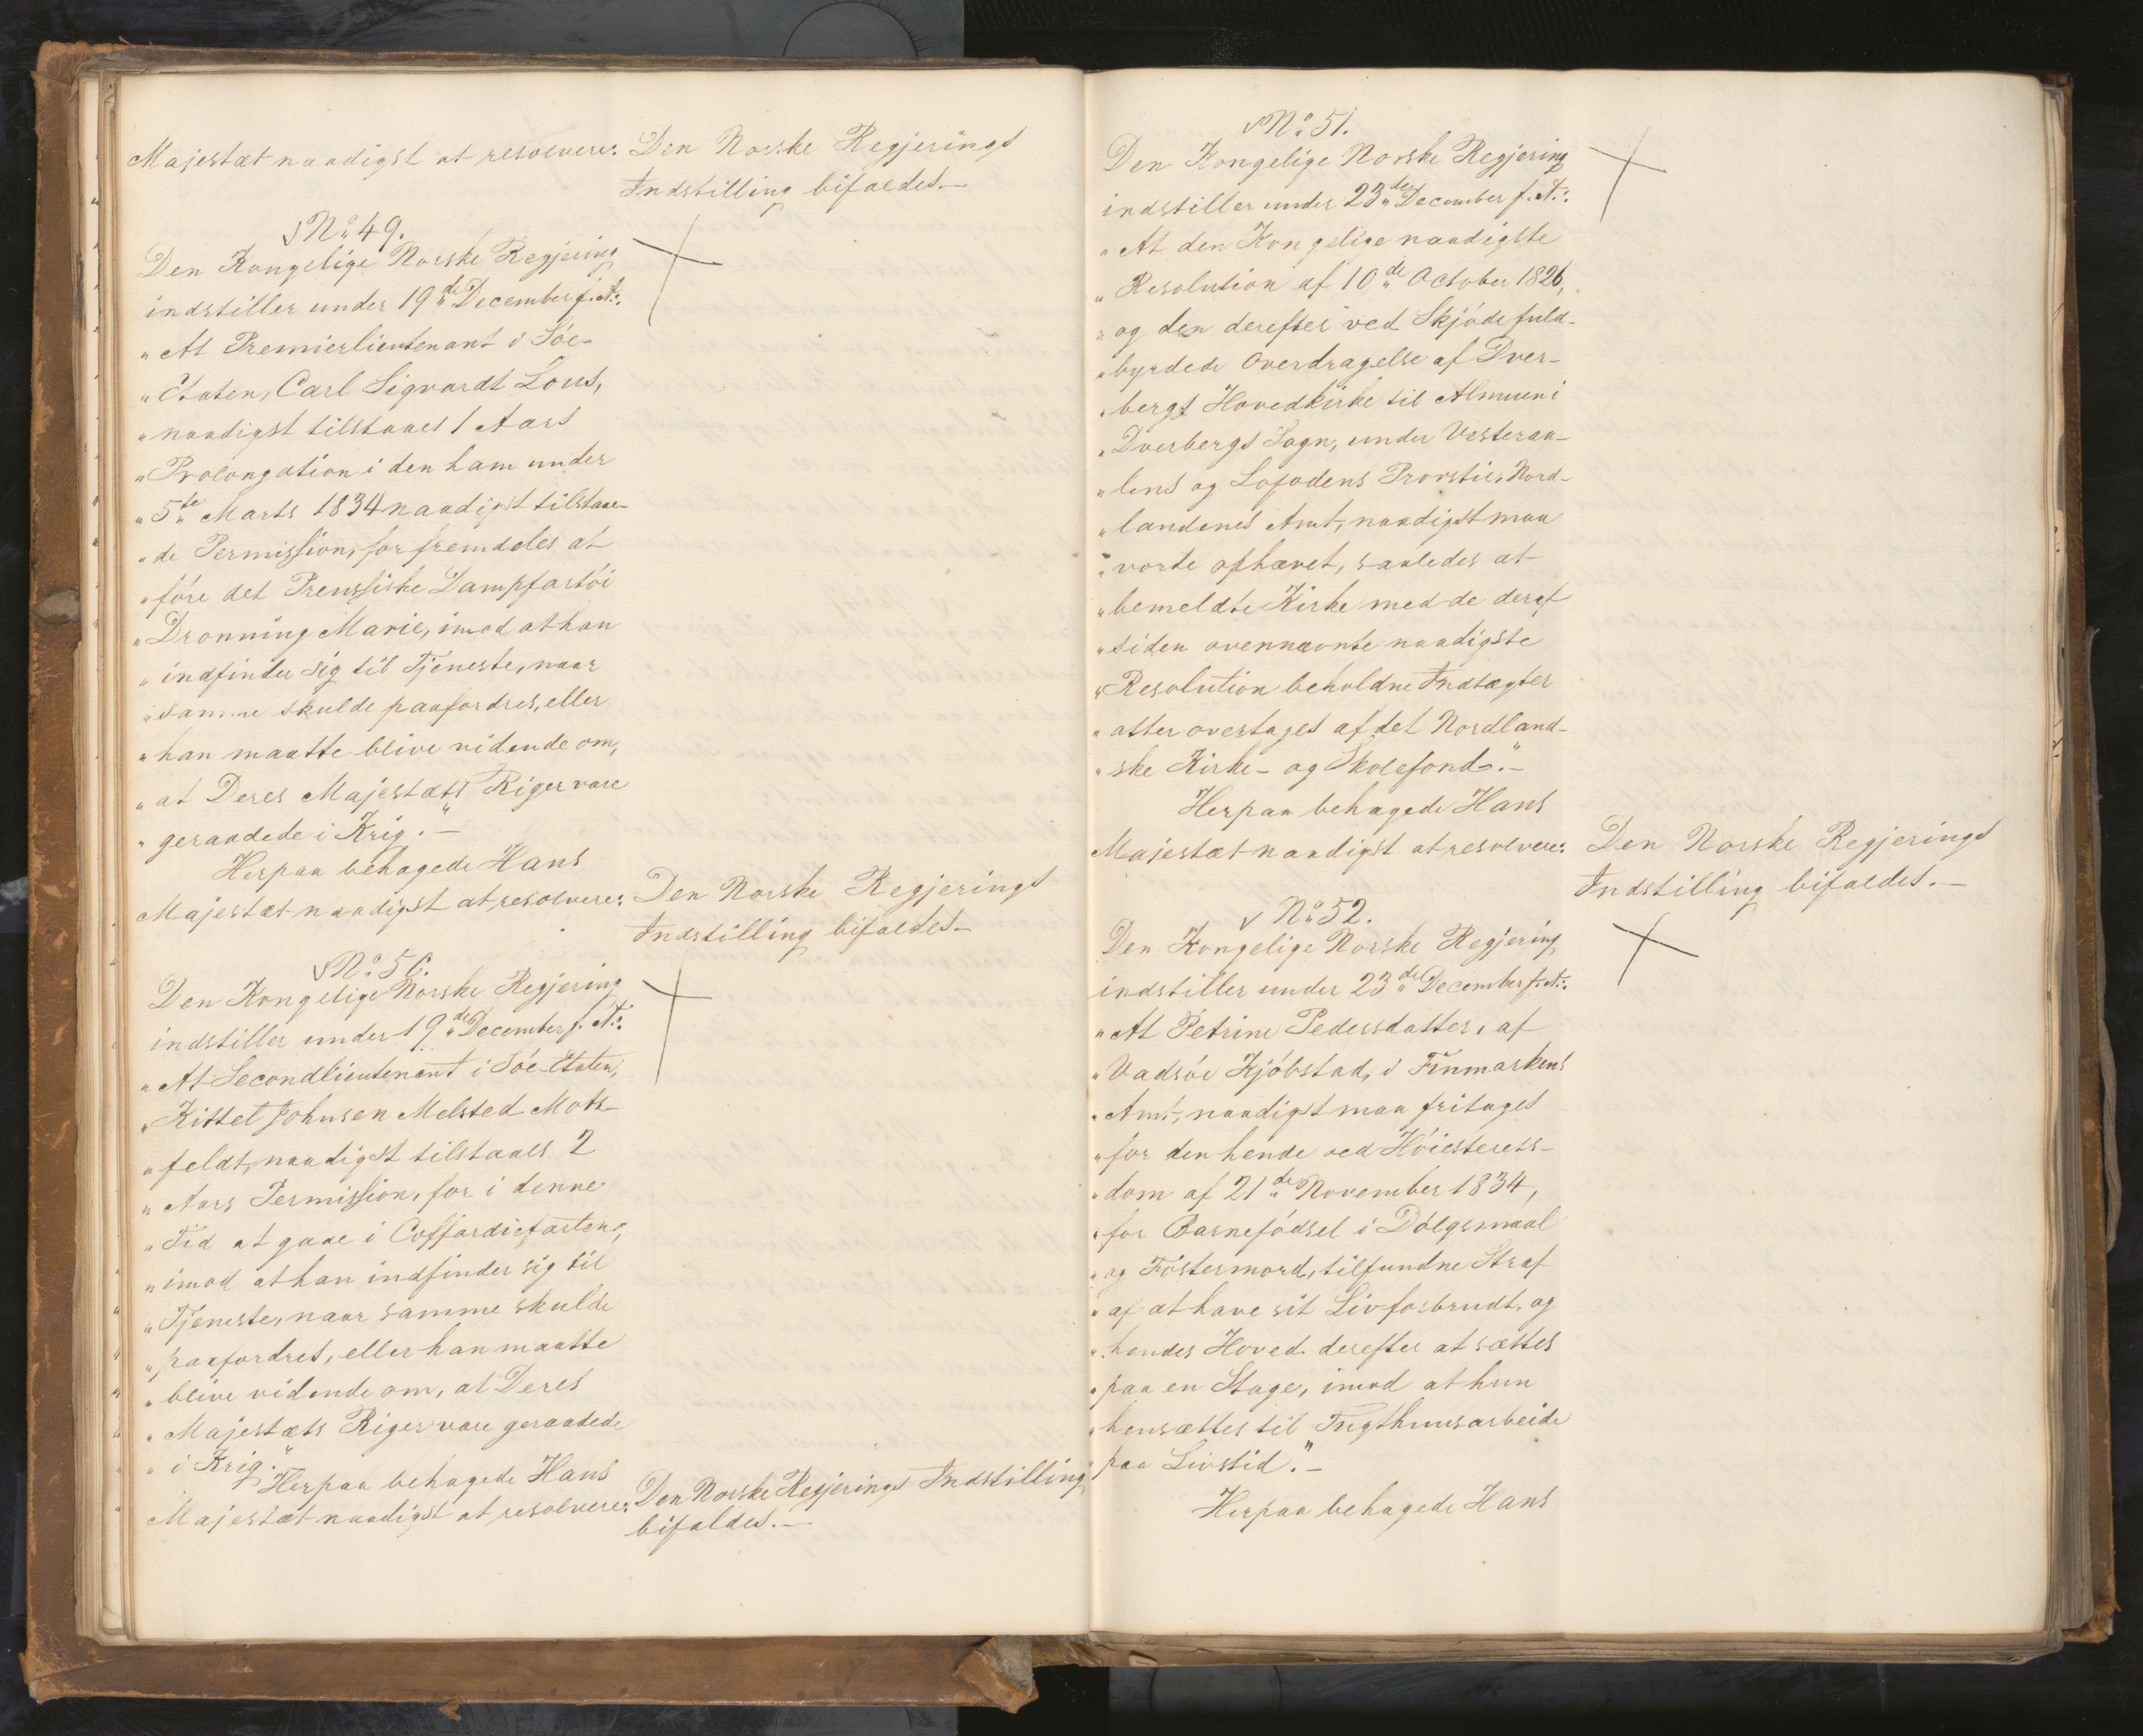 Majestæt naadigst at resolvere: Den Norske Regjerings
Indstilling bifaldes.—
√ No. 49.
Den Kongelige Norske Regjering
indstiller under 19de December f. A.:
"At Premierlieutenant i Söe-
"Etaten, Carl Sigvardt Lous,
"naadigst tilstaaes 1 Aars
"Prolongation i den ham under
"5te Marts 1834 naadigst tilstaae-
"de Permission, for fremdeles at
"före det Preussiske Dampfartöi
"Dronning Marie, imod at han
"indfinder sig til Tjeneste, naar
"samme skulde paafordres, eller
"han maatte blive vidende om,
"at Deres Majestæts Riger vare
"geraadede i Krig."—
Herpaa behagede Hans
Majestæt naadigst at resolvere: Den Norske Regjerings
Indstilling bifaldes.—
√ No. 50.
Den Kongelige Norske Regjering
indstiller under 19de December f. A.:
"At Secondlieutenant i Söe-Etaten,
"Kittel Johnsen Melsted Mots-
"feldt, naadigst tilstaaes 2
"Aars Permission, for i denne
"Tid at gaae i Coffardiefarten,
"imod at han indfinder sig til
"Tjeneste, naar samme skulde
"paafordres, eller han maatte
"blive vidende om, at Deres
"Majestæts Riger vare geraadede
"i Krig."
Herpaa behagede Hans
Majestæt naadigst at resolvere: Den Norske Regjerings Indstilling
bifaldes.—
√ No. 51.
Den Kongelige Norske Regjering
indstiller under 23de December f. A.:
"At den Kongelige naadigste
"Resolution af 10de October 1826,
"og den derefter ved Skjöde fuld-
"byrdede Overdragelse af Dver-
"bergs Hovedkirke til Almuen i
"Dverbergs Sogn, under Vesteraa-
"lens og Lofodens Provstie, Nord-
"landenes Amt, naadigst maa
"vorde ophævet, saaledes at
"bemeldte Kirke med de deraf
"siden ovennævnte naadigste
"Resolution beholdne Indtægter
"atter overtages af det Nordland-
"ske Kirke- og Skolefond."—
Herpaa behagede Hans
Majestæt naadigst at resolvere: Den Norske Regjerings
Indstilling bifaldes.—
√ No. 52.
Den Kongelige Norske Regjering
indstiller under 23de December f. A.:
"At Petrine Pedersdatter, af
"Vadsöe Kjöbstad, i Finmarkens
"Amt, naadigst maa fritages
"for den hende ved Höiesterets-
"dom af 21de November 1834,
"for Barnefödsel i Dölgsmaal
"og Fostermord, tilfundne Straf
"af at have sit Liv forbrudt, og
"hendes Hoved derefter at sættes
"paa en Stage, imod at hun
"hensættes til Tugthuusarbeide
"paa Livstid."—
Herpaa behagede Hans